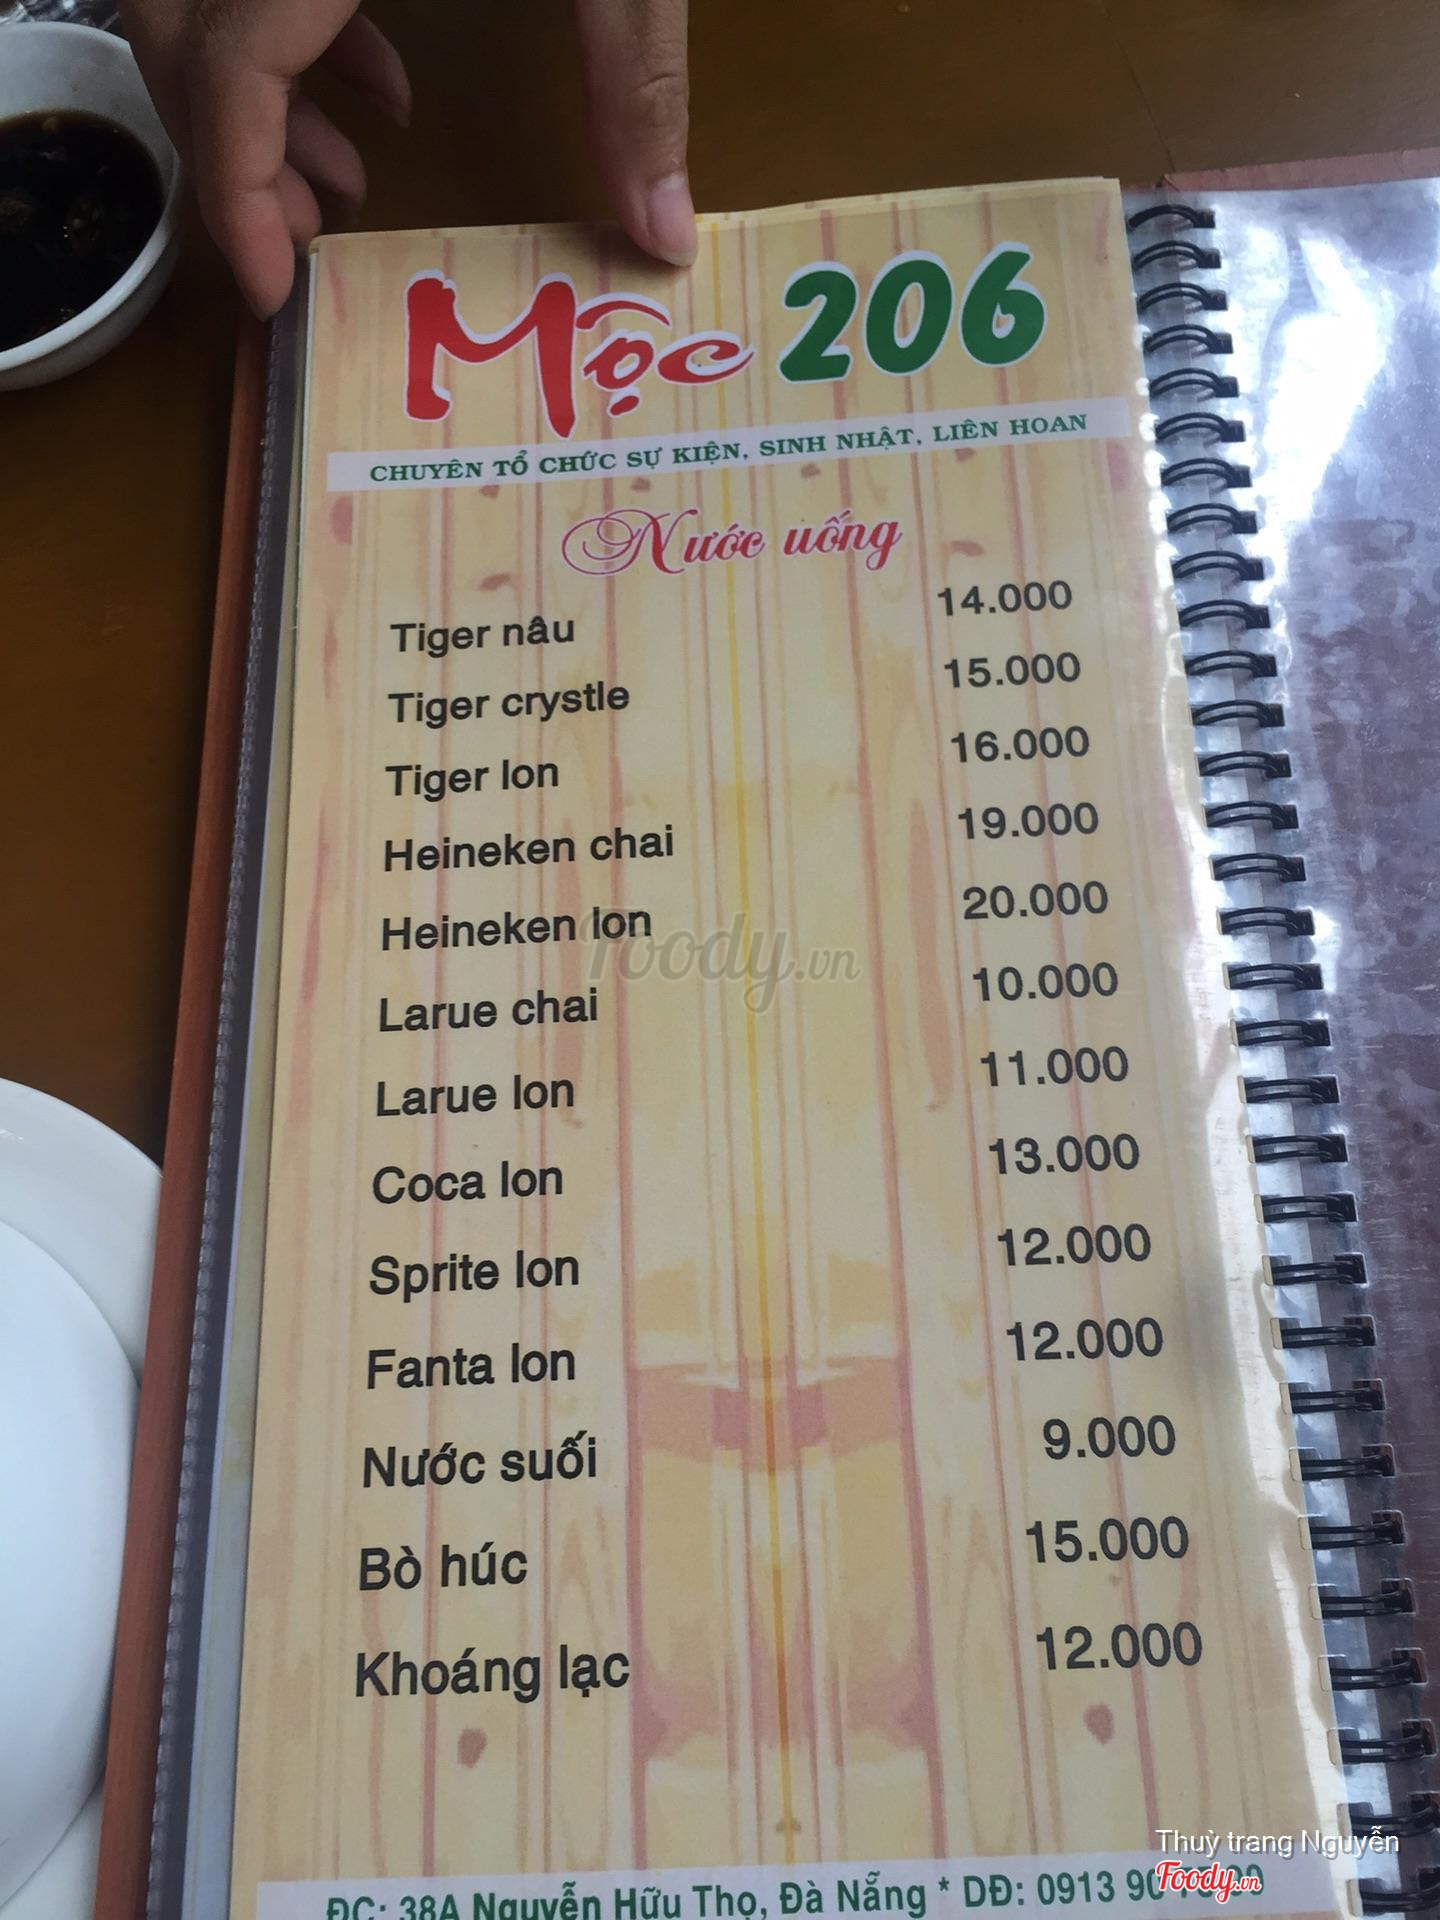 Mộc 206
CHUYÊN TỔ CHỨC SỰ KIỆN, SINH NHẬT, LIÊN HOAN
Nước uống
Tiger nâu 14.000
Tiger crystle 15.000
Tiger lon 16.000
Heineken chai 19.000
Heineken lon 20.000
Foody.vn
Larue chai 10.000
Larue lon 11.000
Coca lon 13.000
Sprite lon 12.000
Fanta lon 12.000
Nước suối 9.000
Bò húc 15.000
Khoáng lạc 12.000
Thuỳ trang Nguyễn
Foody.vn
ĐC: 38A Nguyễn Hữu Thọ, Đà Nẵng * DĐ: 0913